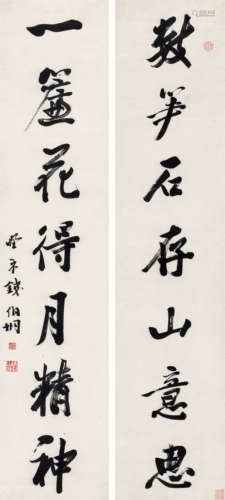 數笋石存山意思
一簾花得月精神
癸未錢伯坰